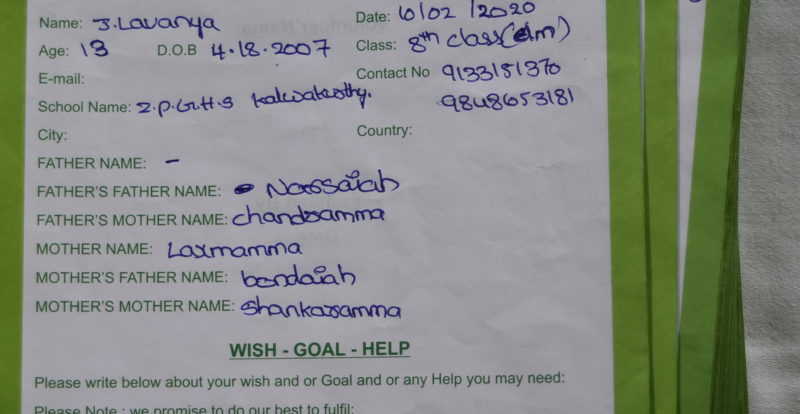 Name: J.Lavanya Date: 6/02/2020
Age: 13 D.O.B 4.18.2007 Class: 8th class(e/m)
E-mail: Contact No 9133151370
School Name: Z.P.G.H.S kalwakurthy. 9848653181
City: Country:
FATHER NAME: -
FATHER'S FATHER NAME: Narssaiah
FATHER'S MOTHER NAME: chandramma
MOTHER NAME: Laxmamma
MOTHER'S FATHER NAME: bandaiah
MOTHER'S MOTHER NAME: Shankaramma
WISH - GOAL - HELP
Please write below about your wish and or Goal and or any Help you may need:
Please Note : we promise to do our best to fulfil: